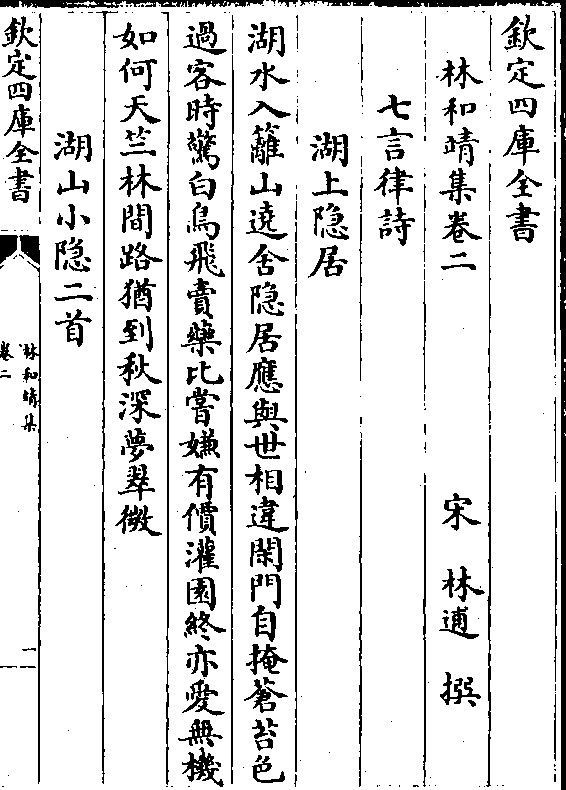 欽定四庫全書
林和靖集卷二
宋 林逋 撰
七言律詩
湖上隐居
湖水入籬山遶舍隐居應與世相違閑門自掩蒼苔色
過客時驚白鳥飛賣藥比嘗嫌有價灌園終亦愛無機
如何天竺林間路猶到秋深夢翠微
湖山小隐二首
欽定四庫全書
林和靖集
卷二
一